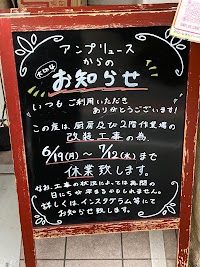 アンプリュース
からの
大切な
お知らせ
いつもご利用いただき
ありがとうございます!
この度は、厨房及び2階作業場の
改装工事の為、
6/19(月)〜7/12(水)まで
休業致します。
なお、工事の状況によっては再開の
日にちが早まるかもしれません。
詳しくは、インスタグラム等にて
お知らせ致します。